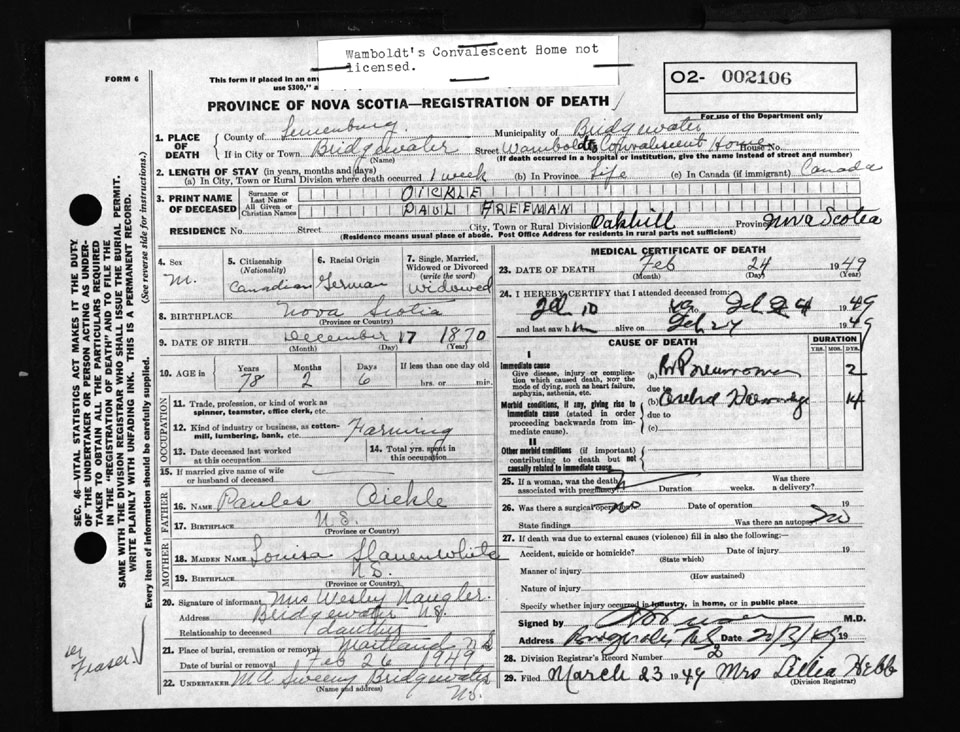 Wamboldt's Convalescent Home not
licensed.
FORM 6
This form if placed in an env
use $300," a
02- 002106
For use of the Department only
PROVINCE OF NOVA SCOTIA—REGISTRATION OF DEATH
1. PLACE OF DEATH
County of Lunenburg Municipality of Bridgewater
If in City or Town Bridgewater Street Wamboldt's Convalescent Home House No.
(Name) (If death occurred in a hospital or institution, give the name instead of street and number)
2. LENGTH OF STAY (in years, months and days)
(a) In City, Town or Rural Division where death occurred 1 week (b) In Province Life (c) In Canada (if immigrant) Canada
3. PRINT NAME OF DECEASED
Surname or Last Name OICKLE
All Given or Christian Names PAUL FREEMAN
RESIDENCE No. Street City, Town or Rural Division Oakhill Province Nova Scotia
(Residence means usual place of abode. Post Office Address for residents in rural parts not sufficient)
4. Sex
M.
5. Citizenship
(Nationality)
Canadian
6. Racial Origin
German
7. Single, Married,
Widowed or Divorced
(write the word)
Widowed
8. BIRTHPLACE Nova Scotia
(Province or Country)
9. DATE OF BIRTH December 17 1870
(Month) (Day) (Year)
10. AGE in
Years Months Days If less than one day old
78 2 6 hrs. or min.
OCCUPATION
11. Trade, profession, or kind of work as
spinner, teamster, office clerk, etc.
12. Kind of industry or business, as cotton-
mill, lumbering, bank, etc. Farming
13. Date deceased last worked
at this occupation
14. Total yrs. spent in
this occupation
15. If married give name of wife
or husband of deceased
FATHER
16. Name Paules Oickle
17. Birthplace N.S.
MOTHER
18. Maiden Name Louisa Slauenwhite
19. Birthplace N.S.
(Province or Country)
20. Signature of informant Mrs Wesley Naugler
Address Bridgewater N.S.
Relationship to deceased Daughter
21. Place of burial, cremation or removal Maitland N.S
Date of burial or removal Feb 26 1949
22. UNDERTAKER M A Sweeny Bridgewater
(Name and address) N.S.
MEDICAL CERTIFICATE OF DEATH
23. DATE OF DEATH Feb 24 1949
(Month) (Day) (Year)
24. I HEREBY CERTIFY that I attended deceased from:
Feb 10 to Feb 24 1949
and last saw him alive on Feb 24 1949
CAUSE OF DEATH
DURATION
YRS. MOS. DYS.
I
Immediate cause
Give disease, injury or complica-
tion which caused death, NOT the
mode of dying, such as heart failure,
asphyxia, asthenia, etc.
(a) Br Pneumonia 2
due to
Morbid conditions, if any, giving rise to
immediate cause (stated in order
proceeding backwards from im-
mediate cause).
(b) Cerebral Haemorrhage 14
due to
(c)
II
Other morbid conditions (if important)
contributing to death but not
causally related to immediate cause.
25. If a woman, was the death
associated with pregnancy? Duration weeks. Was there
a delivery?
26. Was there a surgical operation? no Date of operation 19
State findings Was there an autopsy? no
27. If death was due to external causes (violence) fill in also the following:—
Accident, suicide or homicide? Date of injury 19
(State which)
Manner of injury
(How sustained)
Nature of injury
Specify whether injury occurred in industry, in home, or in public place
Signed by M.D.
Address Date 19
28. Division Registrar's Record Number 2
29. Filed March 23 1949 Mrs Lillia Hebb
(Division Registrar)
SEC. 46—VITAL STATISTICS ACT MAKES IT THE DUTY
OF THE UNDERTAKER OR PERSON ACTING AS UNDER-
TAKER TO OBTAIN ALL THE PARTICULARS REQUIRED
IN THE "REGISTRATION OF DEATH" AND TO FILE THE
SAME WITH THE DIVISION REGISTRAR WHO SHALL ISSUE THE BURIAL PERMIT.
WRITE PLAINLY WITH UNFADING INK. THIS IS A PERMANENT RECORD.
Every item of information should be carefully supplied. (See reverse side for instructions.)
Fraser.